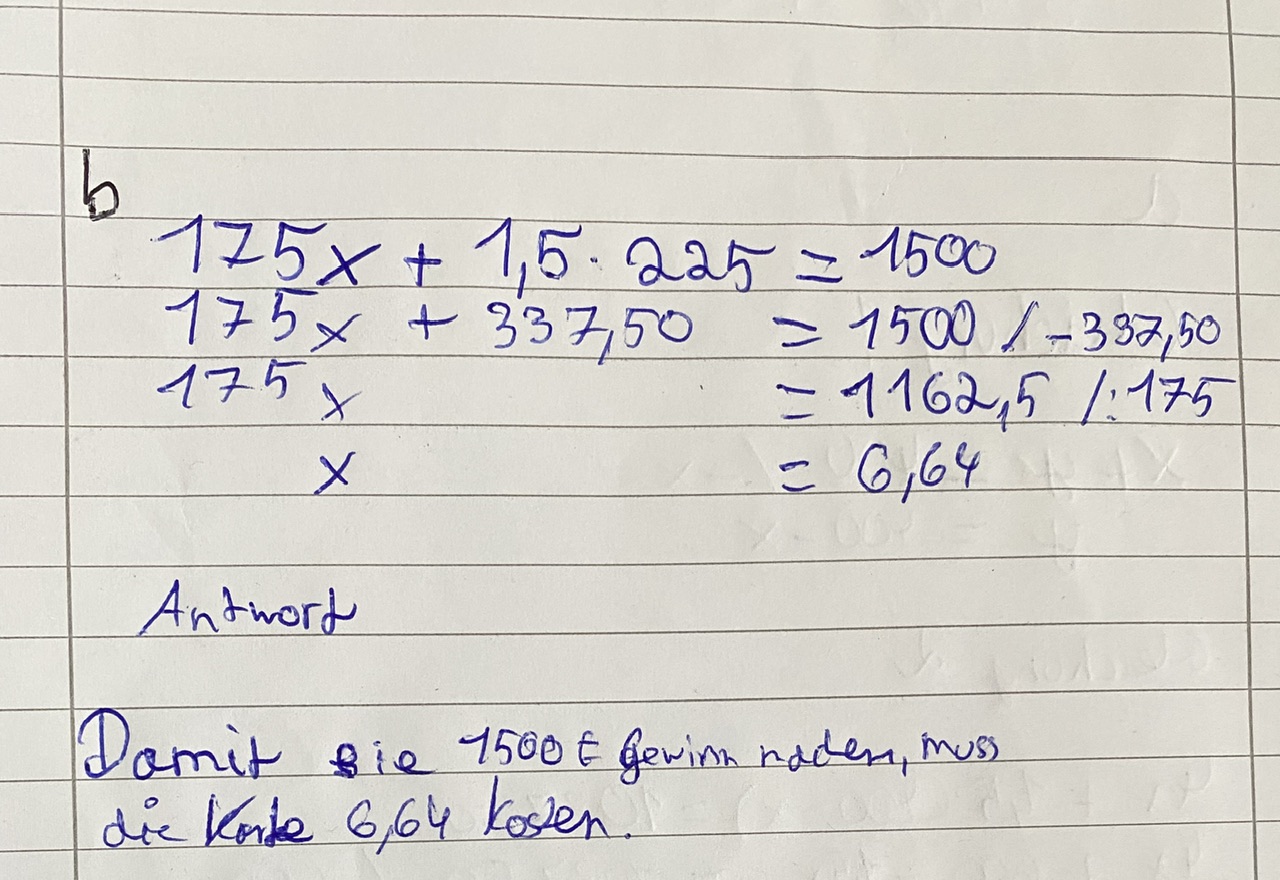 b
175x + 1,5 · 225 = 1500
175x + 337,50 = 1500 / -337,50
175x = 1162,5 /:175
x = 6,64
Antwort
Damit sie 1500 € Gewinn machen, muss
die Karte 6,64 kosten.